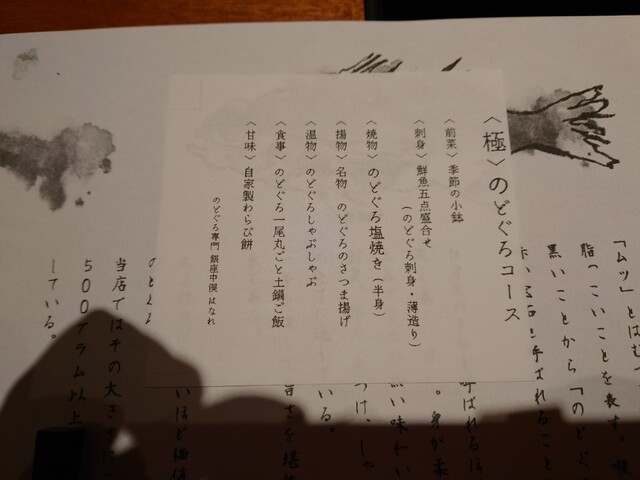 〈極〉のどぐろコース
〈前菜〉季節の小鉢
〈刺身〉鮮魚五点盛合せ
(のどぐろ刺身・薄造り)
〈焼物〉のどぐろ塩焼き(半身)
〈揚物〉名物 のどぐろのさつま揚げ
〈温物〉のどぐろしゃぶしゃぶ
〈食事〉のどぐろ一尾丸ごと土鍋ご飯
〈甘味〉自家製わらび餅
のどぐろ専門 銀座中俣 はなれ
「ムツ」とは
脂っこいことを表す。
黒いことから「のどぐ
と呼ばれること
呼ばれるほ
。身が柔
黒い味わい
つけ、しゃ
いる。
旨さを堪
のどぐろ
いほど価値
当店ではその大きさに
500グラム以上
している。